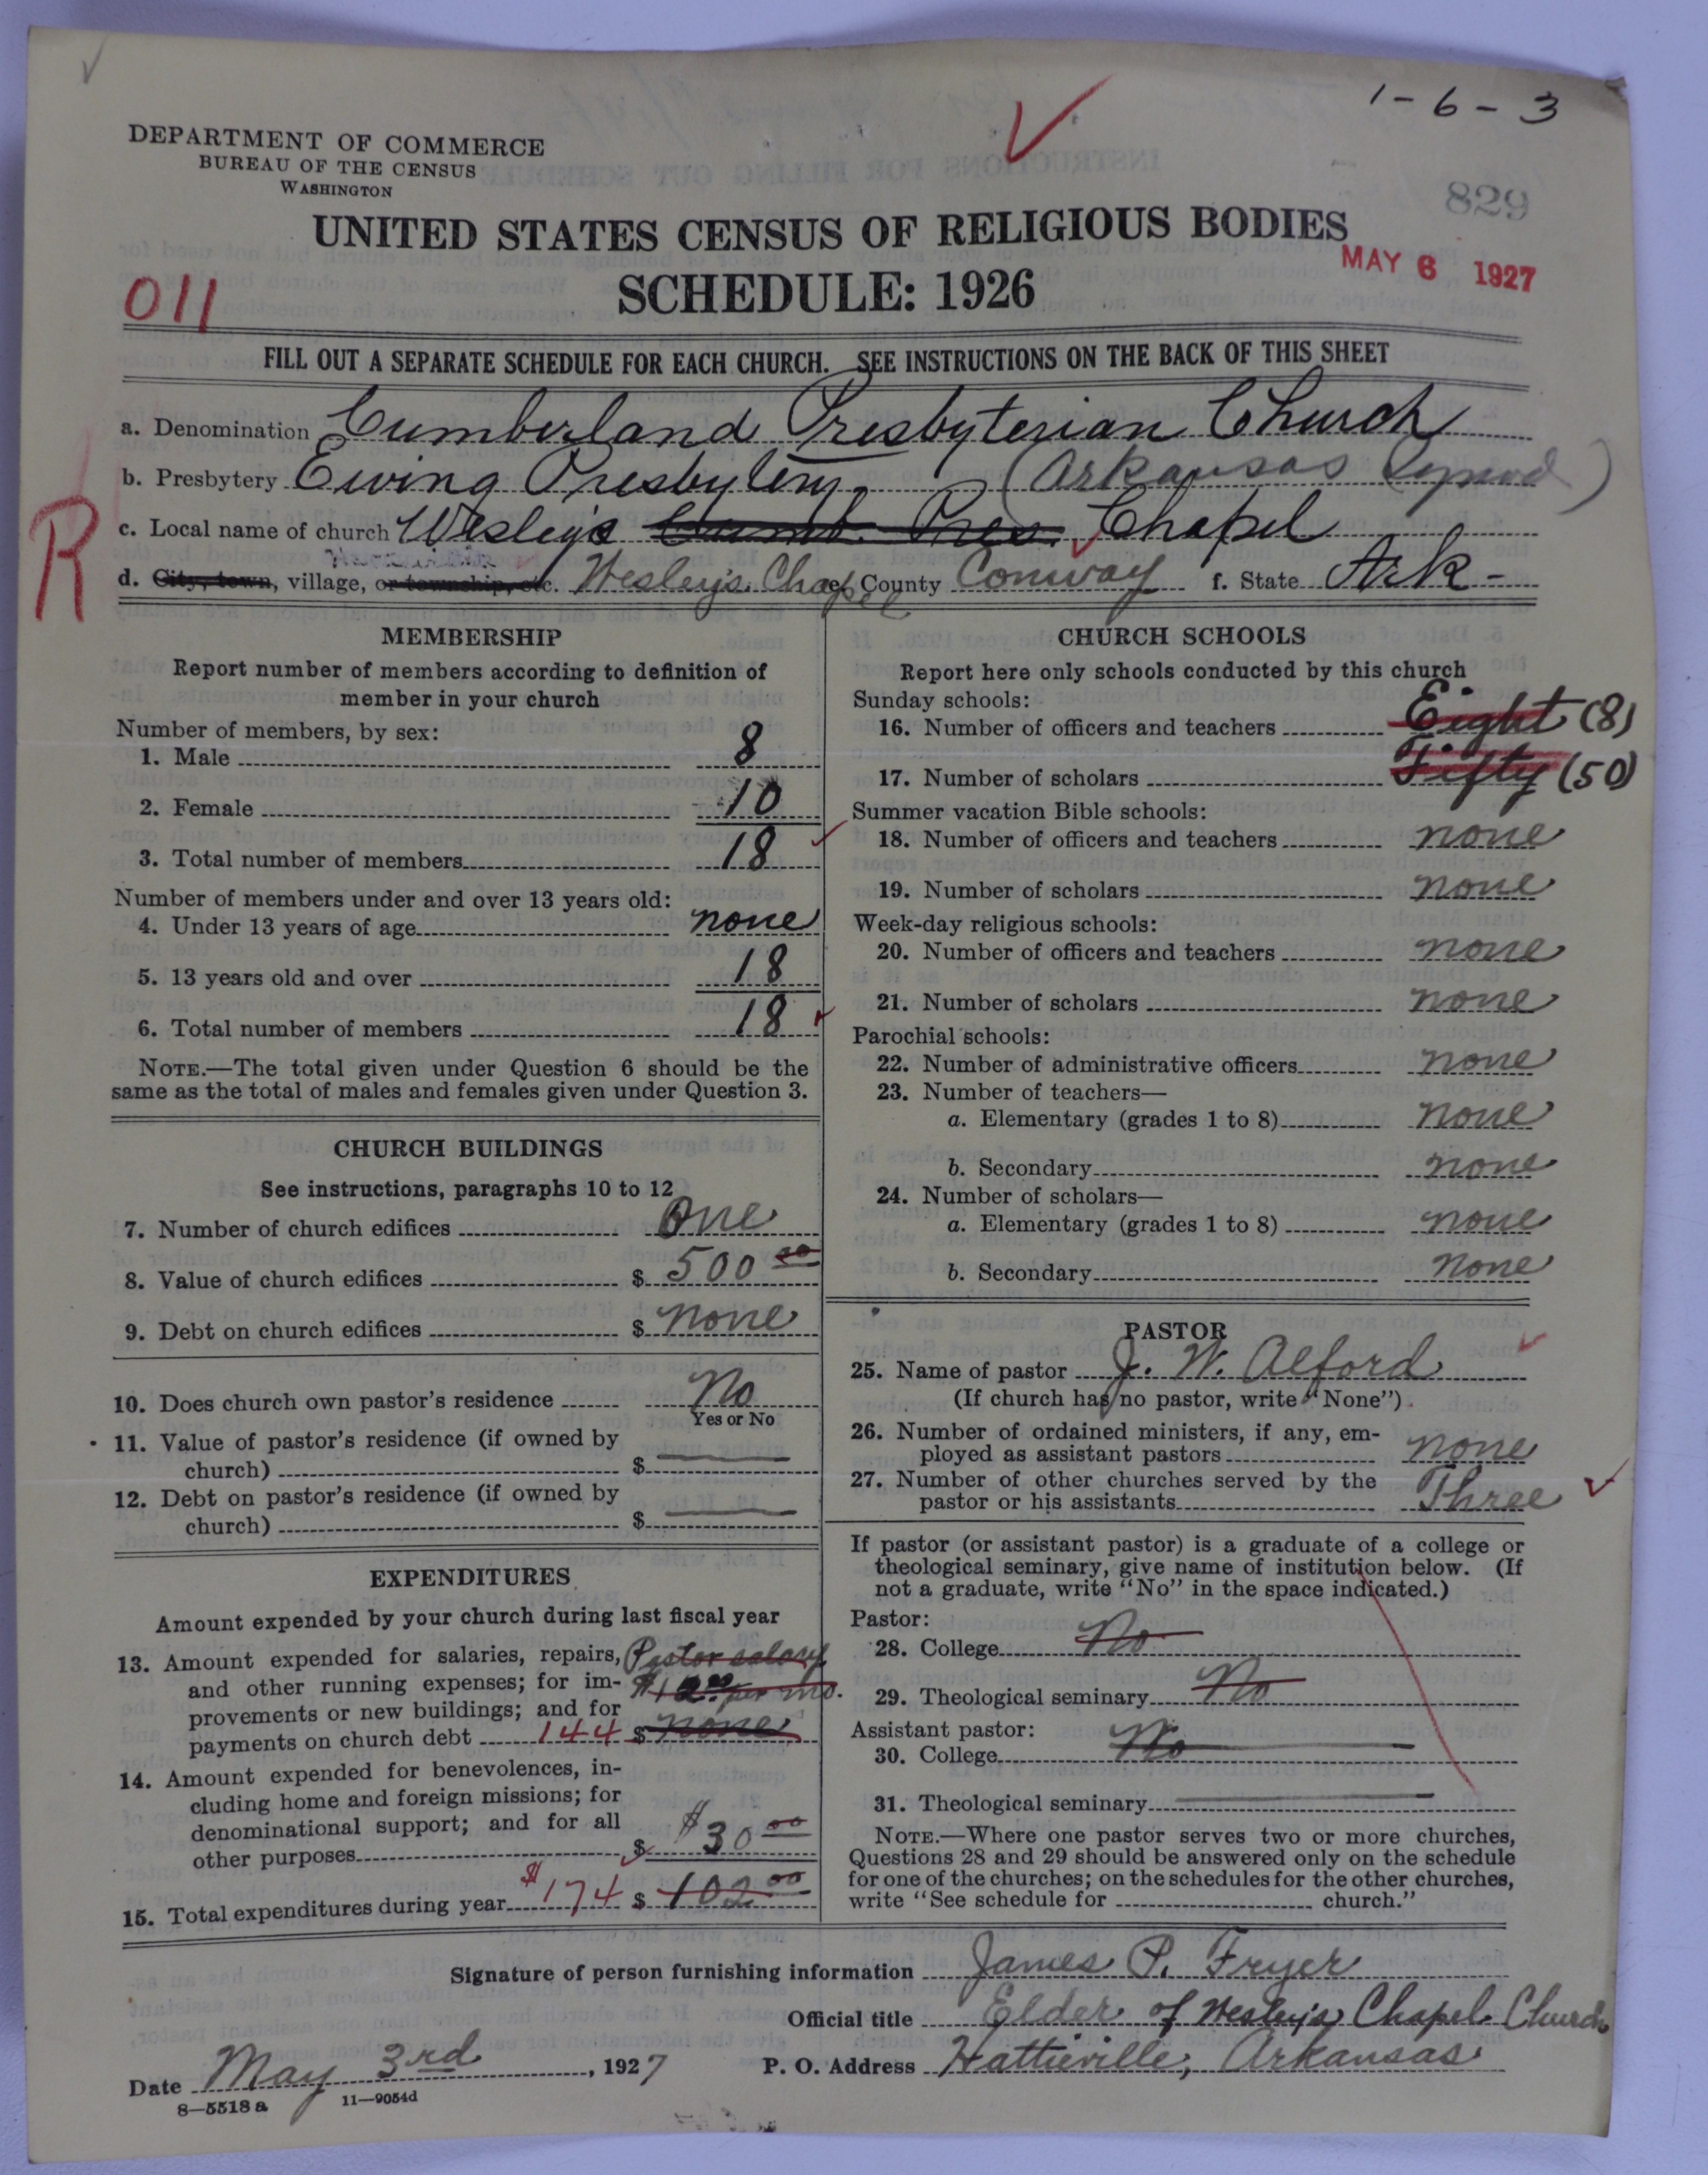 1-6-3
DEPARTMENT OF COMMERCE
BUREAU OF THE CENSUS
WASHINGTON
829
UNITED STATES CENSUS OF RELIGIOUS BODIES
MAY 6 1927
SCHEDULE: 1926
011
FILL OUT A SEPARATE SCHEDULE FOR EACH CHURCH. SEE INSTRUCTIONS ON THE BACK OF THIS SHEET
a. Denomination Cumberland Presbyterian Church
b. Presbytery Ewing Presbytery (Arkansas Synod)
R
c. Local name of church Wesley's Cumb. Pres. Chapel
d. City, town, village, or township, etc. Wesley's Chapel e. County Conway f. State Ark-
MEMBERSHIP
Report number of members according to definition of
member in your church
Number of members, by sex:
1. Male 8
2. Female 10
3. Total number of members 18
Number of members under and over 13 years old:
4. Under 13 years of age none
5. 13 years old and over 18
6. Total number of members 18
NOTE.—The total given under Question 6 should be the
same as the total of males and females given under Question 3.
CHURCH BUILDINGS
See instructions, paragraphs 10 to 12
7. Number of church edifices One
8. Value of church edifices $ 500 00
9. Debt on church edifices $ none
10. Does church own pastor's residence No
Yes or No
11. Value of pastor's residence (if owned by
church) $
12. Debt on pastor's residence (if owned by
church) $
EXPENDITURES
Amount expended by your church during last fiscal year
13. Amount expended for salaries, repairs, Pastor salary
and other running expenses; for im- $12.00 per mo.
provements or new buildings; and for
payments on church debt 144 $ none
14. Amount expended for benevolences, in-
cluding home and foreign missions; for
denominational support; and for all
other purposes $ $30 00
15. Total expenditures during year $174 $ 102 00
CHURCH SCHOOLS
Report here only schools conducted by this church
Sunday schools:
16. Number of officers and teachers Eight (8)
17. Number of scholars Fifty (50)
Summer vacation Bible schools:
18. Number of officers and teachers none
19. Number of scholars none
Week-day religious schools:
20. Number of officers and teachers none
21. Number of scholars none
Parochial schools:
22. Number of administrative officers none
23. Number of teachers—
a. Elementary (grades 1 to 8) none
b. Secondary none
24. Number of scholars—
a. Elementary (grades 1 to 8) none
b. Secondary none
PASTOR
25. Name of pastor J. W. Alford
(If church has no pastor, write "None")
26. Number of ordained ministers, if any, em-
ployed as assistant pastors none
27. Number of other churches served by the
pastor or his assistants Three
If pastor (or assistant pastor) is a graduate of a college or
theological seminary, give name of institution below. (If
not a graduate, write "No" in the space indicated.)
Pastor:
28. College No
29. Theological seminary No
Assistant pastor:
30. College No
31. Theological seminary
NOTE.—Where one pastor serves two or more churches,
Questions 28 and 29 should be answered only on the schedule
for one of the churches; on the schedules for the other churches,
write "See schedule for church."
Signature of person furnishing information James P. Fryer
Official title Elder of Wesley's Chapel Church
Date May 3rd, 1927 P. O. Address Hattieville, Arkansas
8—5518 a 11—9054d